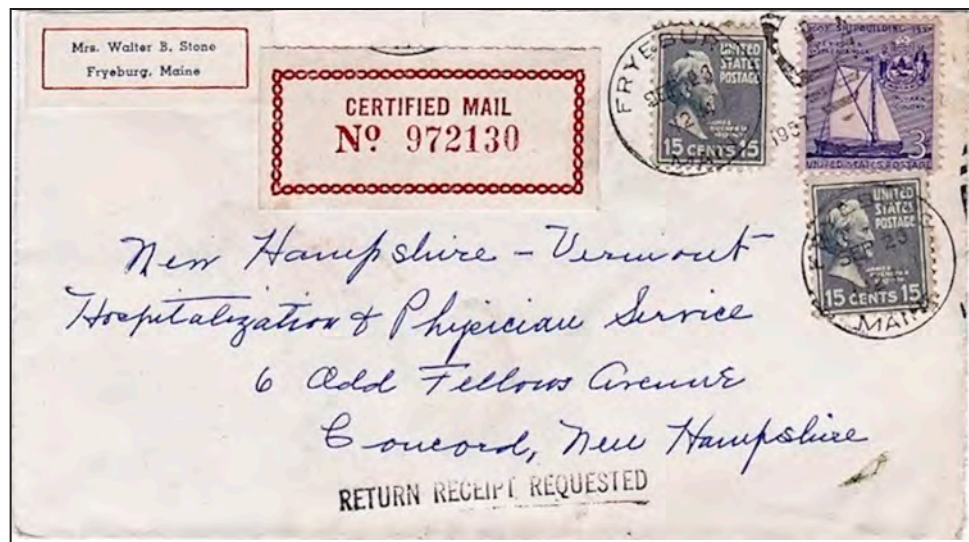 Mrs. Walter B. Stone
Fryeburg, Maine
CERTIFIED MAIL
No 972130
FRYEBURG
SEP 23
12 M
1957
UNITED
STATES
POSTAGE
JAMES
BUCHANAN
15 CENTS 15
SHIPBUILDING
3
UNITED STATES POSTAGE
UNITED
STATES
POSTAGE
JAMES
BUCHANAN
15 CENTS 15
SEP 23
MAINE
New Hampshire - Vermont
Hospitalization & Physician Service
6 Odd Fellows Avenue
Concord, New Hampshire
RETURN RECEIPT REQUESTED